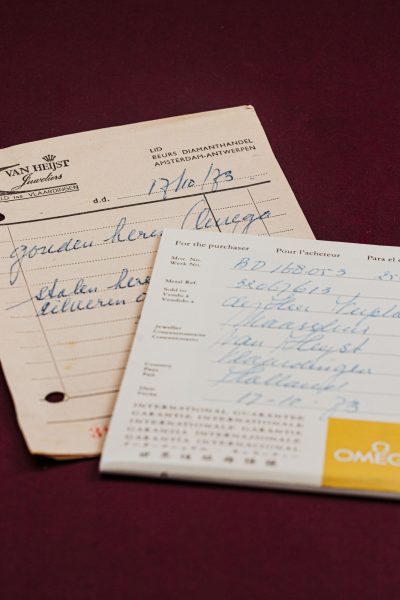 VAN HEIJST
Juweliers
VLAARDINGEN
LID
BEURS DIAMANTHANDEL
AMSTERDAM-ANTWERPEN
d.d. 17/10/73
gouden heren Omega
stalen here
zilveren
For the purchaser Pour l'acheteur Para el c
Mov. No.
Werk No.
BD 168.053
Metal Ref.
32067613
Sold to
Vendu à
Vendido a
Maassluis
Jeweller
Concessionnaire
Concesionario
van Heijst
Vlaardingen
Country
Pays
País
Holland
Date
Fecha
17-10-73
INTERNATIONAL GUARANTEE
GARANTIE INTERNATIONALE
GARANTIA INTERNACIONAL
GARANZIA INTERNAZIONALE
OMEG